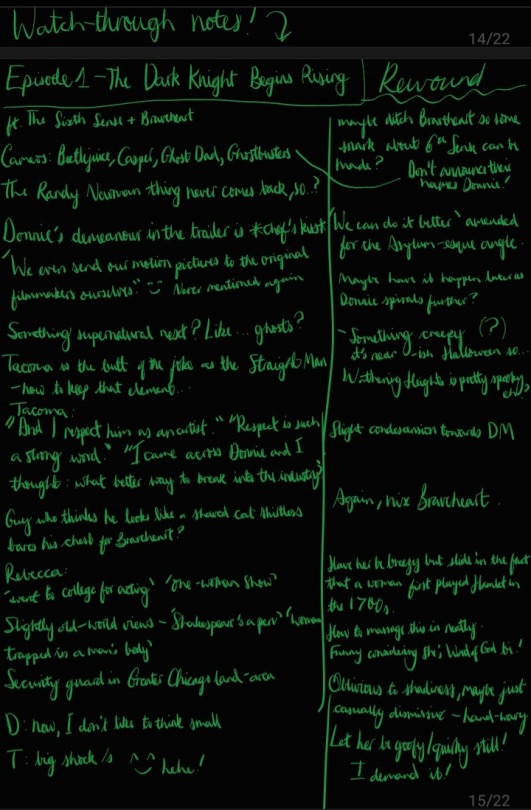 Watch-through notes!
14/22
Episode 1 - The Dark Knight Begins Rising
Rewound
ft. The Sixth Sense + Braveheart
Cameos: Beetlejuice, Casper, Ghost Dad, Ghostbusters
The Randy Newman thing never comes back, so..?
Donnie's demeanour in the trailer is *chef's kiss*
"We even send our motion pictures to the original
filmmakers ourselves." Never mentioned again
Something supernatural next? Like... ghosts?
Tacoma is the butt of the joke as the Straight Man
- how to keep that element...
Tacoma:
"And I respect him as an artist." "Respect is such
a strong word." "I came across Donnie and I
thought: what better way to break into the industry?
Guy who thinks he looks like a shaved cat shirtless
bares his chest for Braveheart?
Rebecca:
'went to college for acting' 'One-woman show'
Slightly old-world views - 'Shakespeare's a perv' 'woman
trapped in a man's body'
Security guard in Greater Chicago land-area
D: now, I don't like to think small
T: big shock /s hehe!
maybe ditch Braveheart so some
snark about 6th Sense can be
made?
Don't announce their
names Donnie!
'We can do it better' amended
for the Asylum-esque angle.
Maybe have it happen later as
Donnie spirals further?
- Something creepy (?)
it's near -ish Halloween so...
Wuthering Heights is pretty spooky,
Slight condescension towards DM
Again, nix Braveheart.
Have her be breezy but slide in the fact
that a woman first played Hamlet in
the 1700s.
How to manage this in neatly.
Funny considering she's kind of bi!
Oblivious to shadiness, maybe just
casually dismissive - hand-wavy
Let her be goofy/quirky still!
I demand it!
15/22